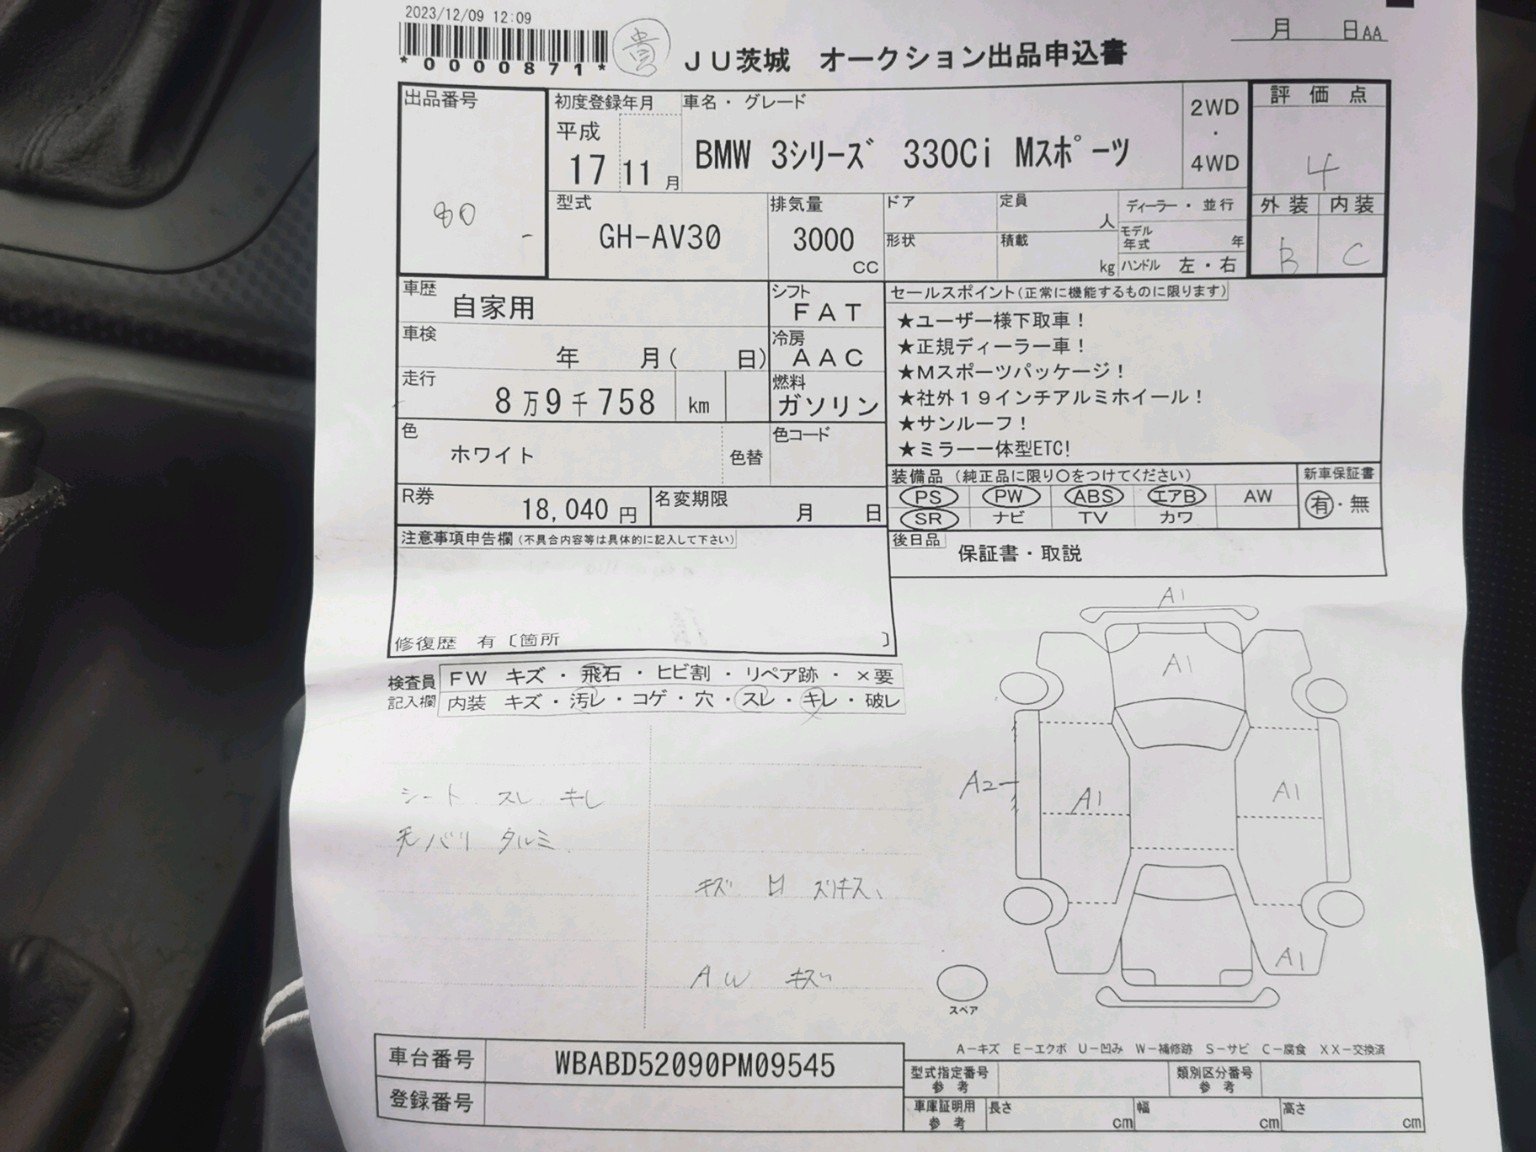 2023/12/09 12:09
*0000871*
貴
JU茨城 オークション出品申込書
月 日AA
出品番号
80
初度登録年月
平成
17 11月
車名・グレード
BMW 3シリーズ 330Ci Mスポーツ
2WD
・
4WD
評価点
4
外装 内装
B C
型式
GH-AV30
排気量
3000
cc
ドア
定員
人
形状
積載
kg
ディーラー・並行
モデル年式 年
ハンドル 左・右
車歴
自家用
シフト
FAT
車検
年 月( 日)
冷房
AAC
走行
8万9千758 km
燃料
ガソリン
色
ホワイト
色替
色コード
R券
18,040円
名変期限
月 日
セールスポイント(正常に機能するものに限ります)
★ユーザー様下取車!
★正規ディーラー車!
★Mスポーツパッケージ!
★社外19インチアルミホイール!
★サンルーフ!
★ミラー一体型ETC!
装備品 (純正品に限り○をつけてください)
PS PW ABS エアB AW
SR ナビ TV カワ
新車保証書
有・無
後日品
保証書・取説
注意事項申告欄(不具合内容等は具体的に記入して下さい)
修復歴 有〔箇所 〕
検査員
記入欄
FW キズ・飛石・ヒビ割・リペア跡・×要
内装 キズ・汚レ・コゲ・穴・スレ・キレ・破レ
シート スレ キレ
タルミ
キズ
AW キズ
A1
A1
A2
A1
A1
A1
スペア
A−キズ E−エクボ U−凹み W−補修跡 S−サビ C−腐食 XX−交換済
車台番号
WBABD52090PM09545
登録番号
型式指定番号
参考
類別区分番号
参考
車庫証明用
参考
長さ cm
幅 cm
高さ cm